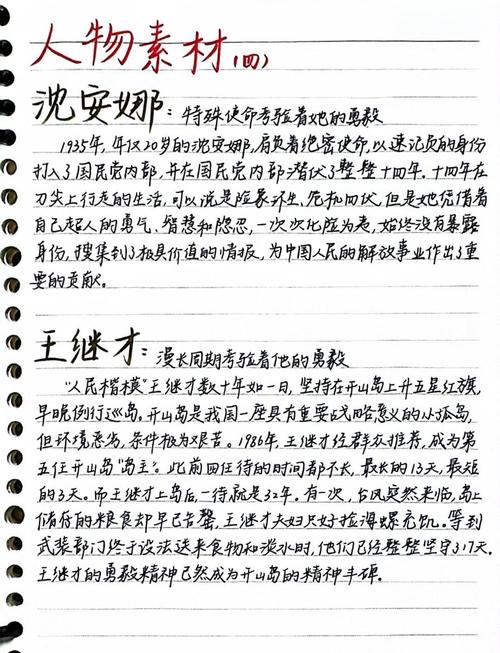 人物素材(四)
沈安娜：特殊使命考验着她的勇毅
1935年，年仅20岁的沈安娜，肩负着绝密使命，以速记员的身份
打入了国民党内部，并在国民党内部潜伏了整整十四年。十四年在
刀尖上行走的生活，可以说是险象环生、危机四伏，但是她凭借着
自己超人的勇气、智慧和隐忍，一次次化险为夷，始终没有暴露
身份，搜集到了极具价值的情报，为中国人民的解放事业作出了重
要的贡献。
王继才：漫长周期考验着他的勇毅
“人民楷模”王继才数十年如一日，坚持在开山岛上升五星红旗，
早晚例行巡岛。开山岛是我国一座具有重要战略意义的小孤岛，
但环境恶劣，条件极为艰苦。1986年，王继才经群众推荐，成为第
五任开山岛“岛主”。此前四任待的时间都不长，最长的13天，最短
的3天。而王继才上岛后，一待就是32年。有一次，台风突然来临，岛上
储存的粮食却早已告罄，王继才夫妇只好捡海螺充饥。等到
武装部门终于设法送来食物和淡水时，他们已经整整坚守了17天。
王继才的勇毅精神已然成为开山岛的精神丰碑。